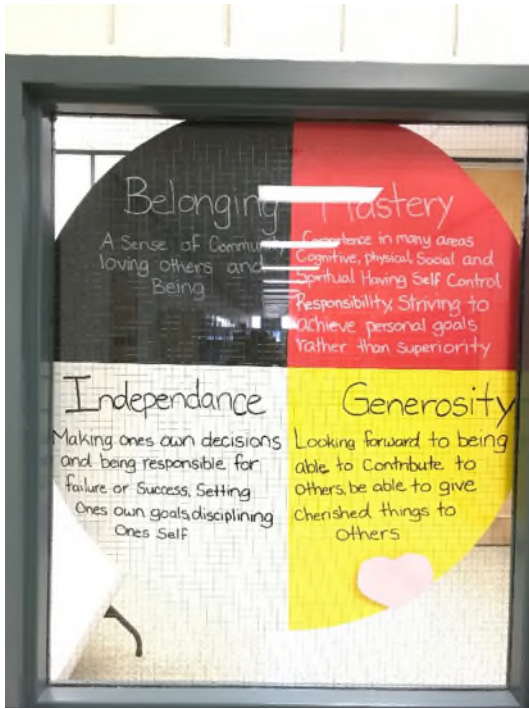 Belonging
A Sense of Community
loving others and
Being
Mastery
Competence in many areas
Cognitive, physical, Social and
Spiritual Having Self Control
Responsibility, Striving to
achieve personal goals
rather than Superiority
Independance
Making ones own decisions
and being responsible for
failure or Success, Setting
Ones own goals, disciplining
Ones Self
Generosity
Looking forward to being
able to Contribute to
others, be able to give
Cherished things to
others